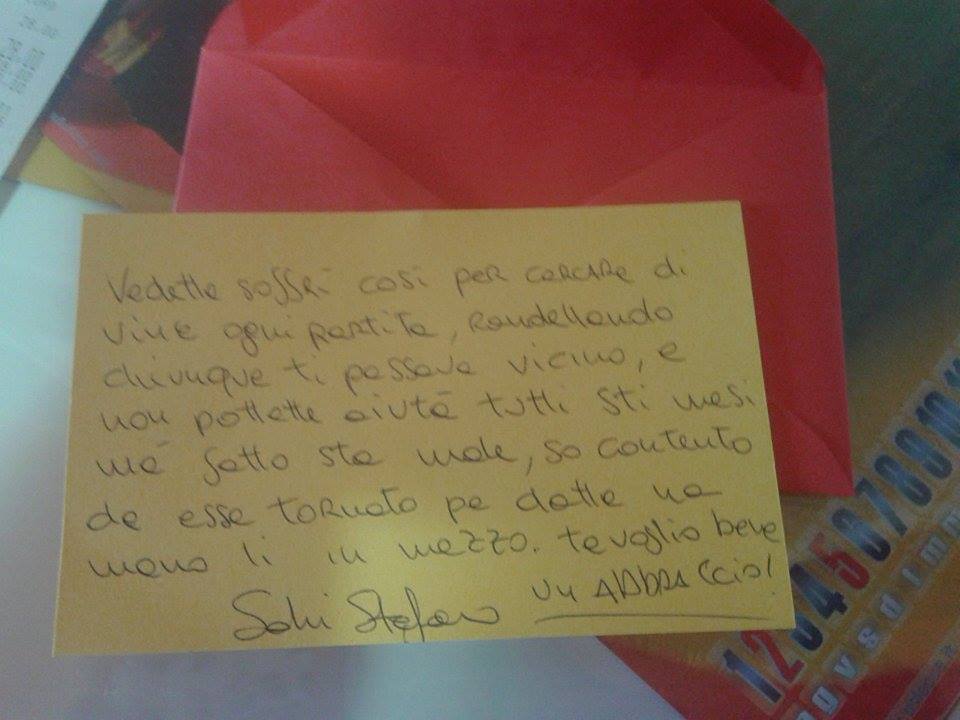 Vedette soffrì così per cercare di
vince ogni partita, randellando
chiunque ti passava vicino, e
non potette aiutà tutti sti mesi
m'à fatto sta male, so contento
de esse tornato pe datte na
mano li in mezzo. te voglio bene
un ABBRACCIO!
Stefano
28.00
1 2 3 4 5 6 7 8 9 10 11
g v s d l m